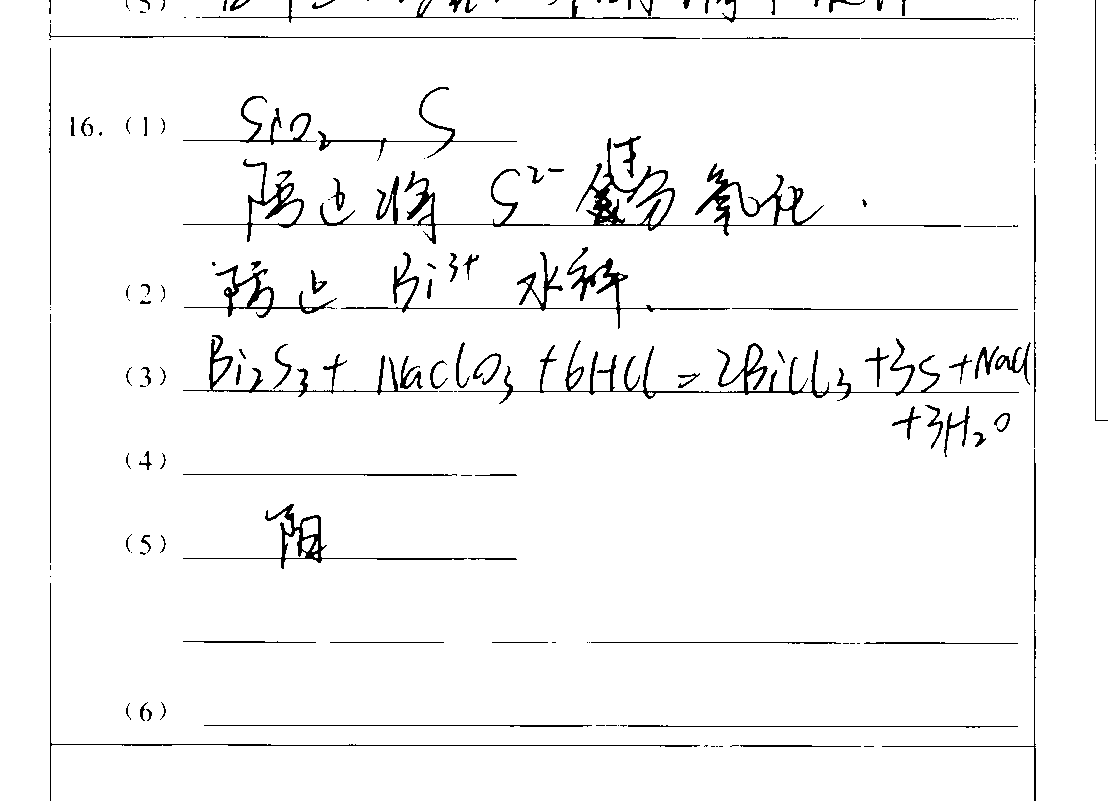 (3)
16. (1) SiO₂, S
防止将 S²⁻ 充分氧化.
(2) 防止 Bi³⁺ 水解.
(3) Bi₂S₃ + NaClO₃ + 6HCl = 2BiCl₃ + 3S + NaCl
+3H₂O
(4)
(5) 阳
(6)